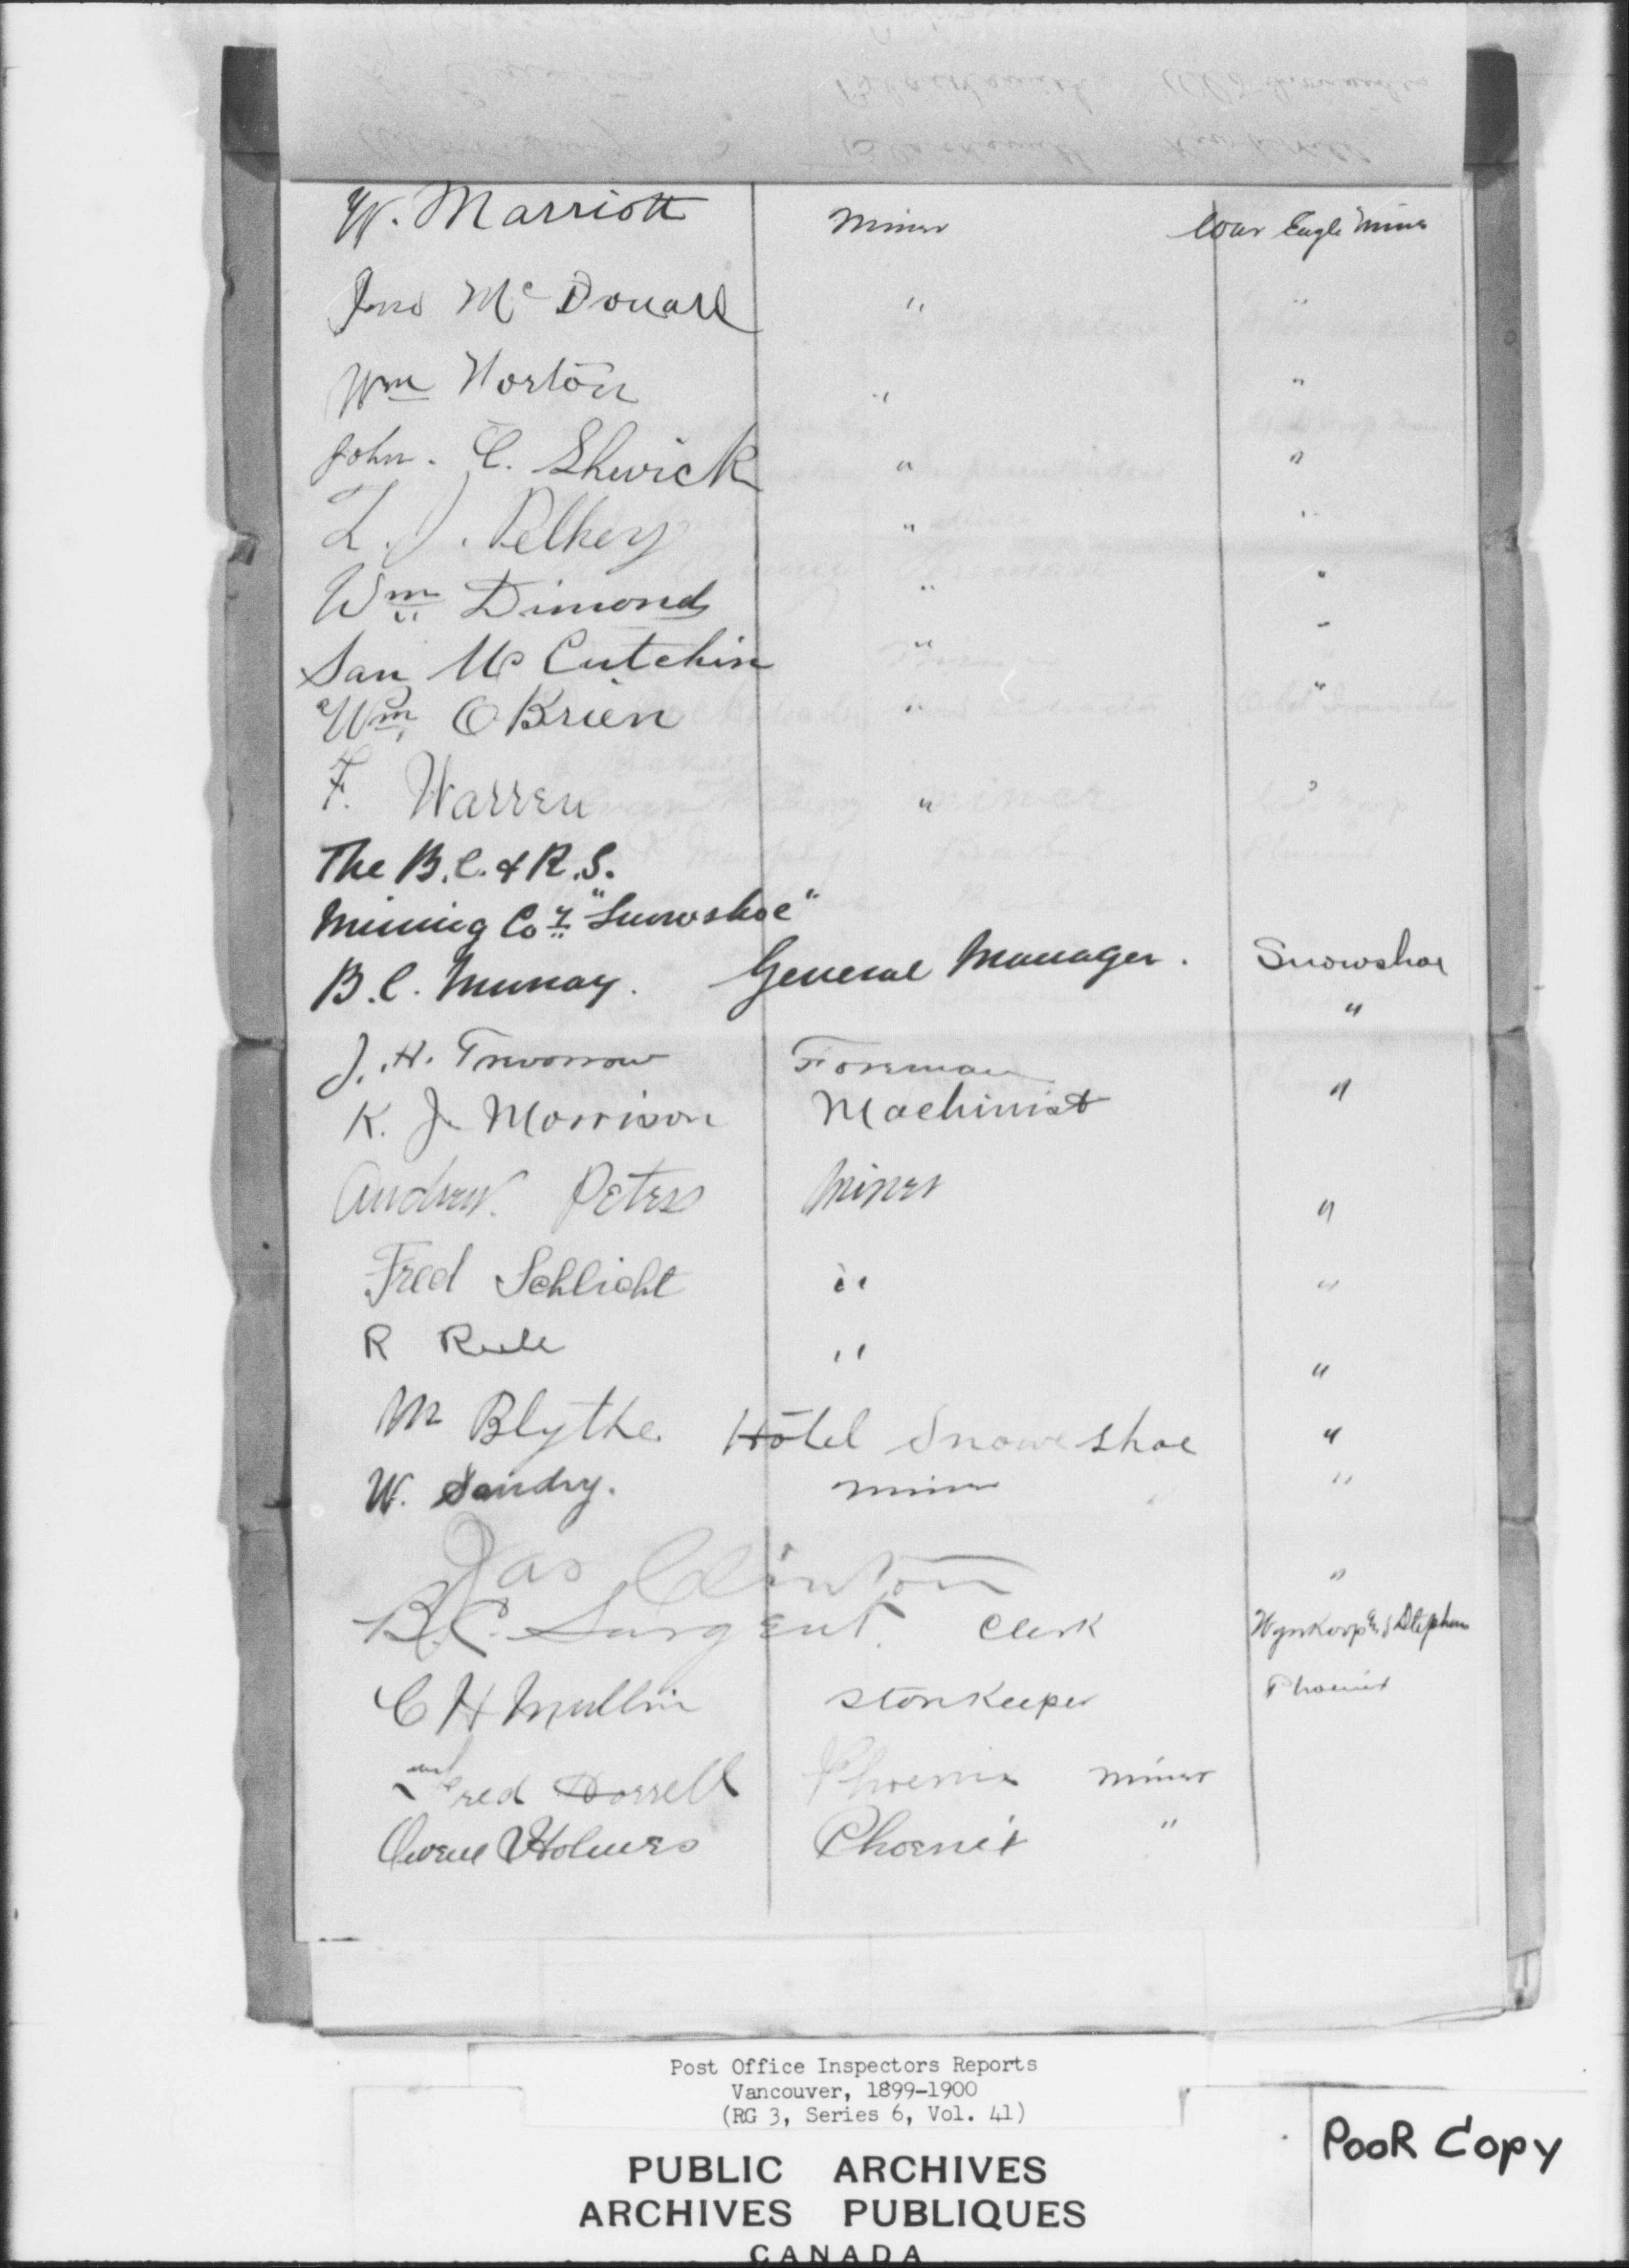 W. Marriott Miner War Eagle Mine
Jno McDonald " "
Wm Norton " "
John. C. Shwick " "
L. J. Pelkey " "
Wm Dimond " "
San Mc Cutchin " "
Wm O Brien " "
F. Warren " "
The B.C. & R.S.
Mining Coy "Snowshoe"
B.C. Murray. General Manager. Snowshoe
"
J. H. Trevorrow Foreman
K. J. Morrison Machinist "
Andrew. Peters Miner "
Fred Schlicht " "
R Rule " "
M Blythe Hotel Snoweshoe "
W. Sandry. Miner "
Jas Clinton "
B.C. Sargent. Clerk Stephens
C H Mullin Storekeeper Phoenix
Fred Dorrell Phoenix Miner
Owen Holmes Phoenix "
Post Office Inspectors Reports
Vancouver, 1899-1900
(RG 3, Series 6, Vol. 41)
PooR Copy
PUBLIC ARCHIVES
ARCHIVES PUBLIQUES
CANADA